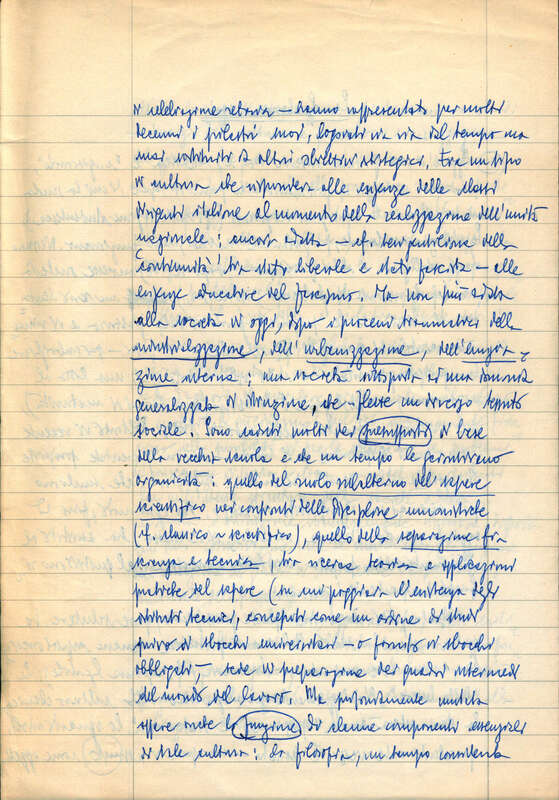 di celebrazione retorica — hanno rappresentato per molti
decenni i pilastri, logorati via via dal tempo ma
mai sostituiti da altri obiettivi strategici. Era un tipo
di cultura che rispondeva alle esigenze delle classi
dirigenti italiane al momento della realizzazione dell'unità
nazionale; ancora adatta — della
'continuità' tra stato liberale e stato fascista — alle
esigenze educative del fascismo. Ma non più adatta
alla società di oggi, dopo i processi traumatici della
industrializzazione, dell'urbanizzazione, dell'emigra-
zione interna; una società sottoposta ad una domanda
generalizzata di istruzione, che riflette un diverso tessuto
sociale. Sono caduti molti dei presupposti di base
della vecchia scuola e che un tempo le garantivano
organicità: quello del ruolo subalterno del sapere
scientifico nei confronti delle discipline umanistiche
(cf. classico ~ scientifico), quello della separazione fra
scienza e tecnica, tra ricerca teorica e applicazioni
pratiche del sapere (su cui poggiava l'esistenza degli
istituti tecnici, concepiti come un ordine di studi
privo di sbocchi universitari — o fornito di sbocchi
obbligati —, sede di preparazione dei quadri intermedi
del mondo del lavoro. Ma profondamente mutata
appare anche la funzione di alcune componenti essenziali
di tale cultura: la filosofia, un tempo considerata